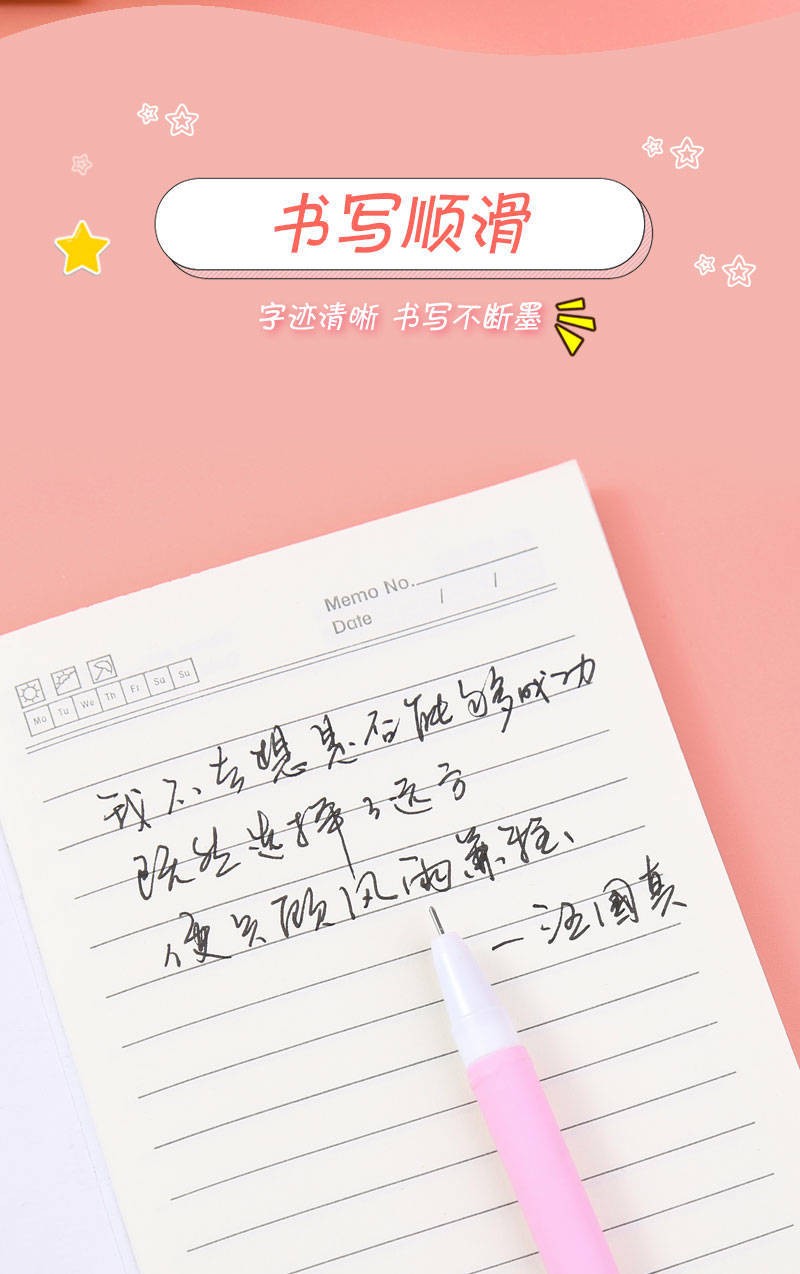 书写顺滑
字迹清晰 书写不断墨
Memo No.
Date / /
Mo Tu We Th Fr Sa Su
我不去想是否能够成功
既然选择了远方
便只顾风雨兼程
—汪国真